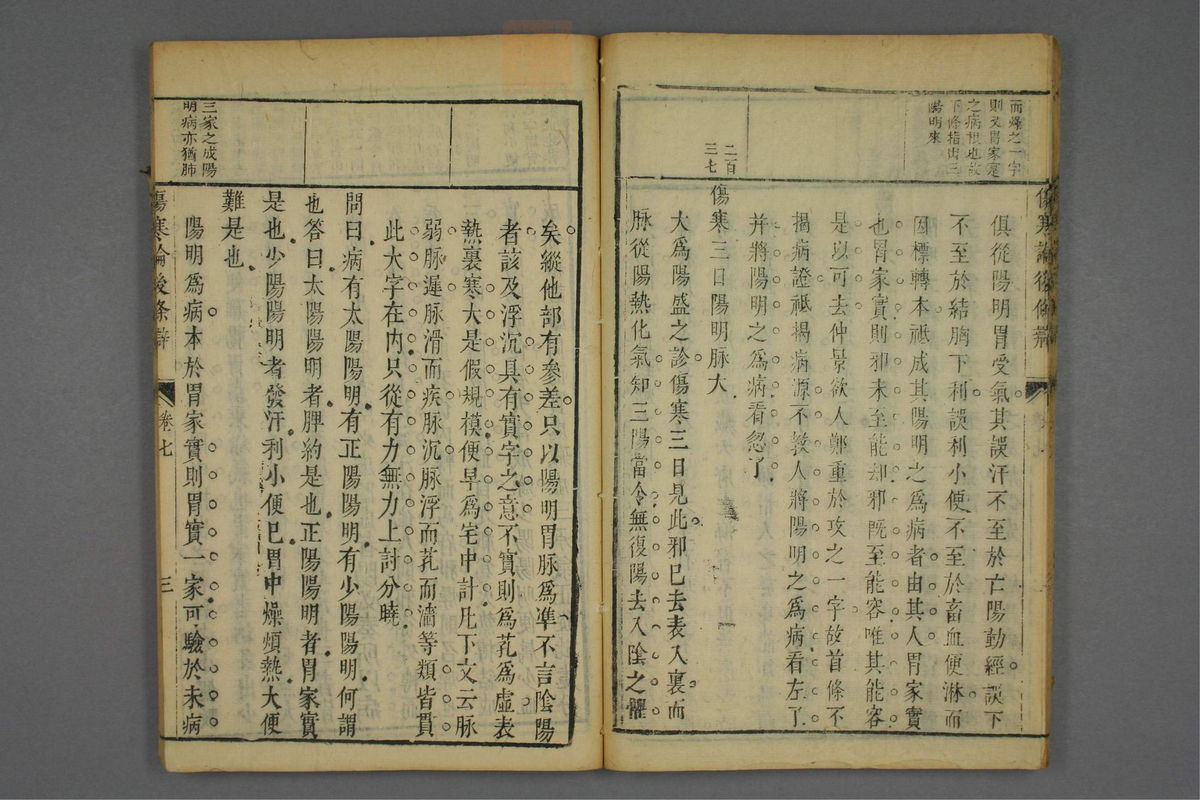 而燥之一字
則又胃家寔
之病根也故
下條指出三
陽明來
二百
三七
傷寒論後條辯
俱從陽明胃受氣其誤汗不至於亡陽動經誤下
不至於結胸下利誤利小便不至於畜血便淋而
因標轉本祗成其陽明之為病者由其人胃家實
也胃家實則邪未至能却邪既至能容唯其能容
是以可去仲景欲人鄭重於攻之一字故首條不
揭病證祗揭病源不教人將陽明之為病看左了
并將陽明之為病看忽了
傷寒三日陽明脉大
大為陽盛之診傷寒三日見此邪已去表入裏而
脉從陽熱化氣知三陽當令無復陽去入陰之懼
三家之成陽
明病亦猶肺
矣縱他部有參差只以陽明胃脉為準不言陰陽
者該及浮沉具有實字之意不實則為芤為虛表
熱裏寒大是假規模便早為宅中計凡下文云脉
弱脉遲脉滑而疾脉沉脉浮而芤而濇等類皆貫
此大字在内只從有力無力上討分曉
問曰病有太陽陽明有正陽陽明有少陽陽明何謂
也答曰太陽陽明者脾約是也正陽陽明者胃家實
是也少陽陽明者發汗利小便已胃中燥煩熱大便
難是也
陽明為病本於胃家實則胃實一家可驗於未病
傷寒論後條辯
卷七
三